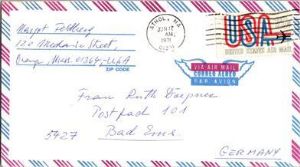 Margot Feldberg
122 Mechanic Street,
Orange Mass. 01364, USA
ZIP CODE
ATHOL, MA.
AM
1971
U.S.A.
UNITED STATES AIR MAIL
VIA AIR MAIL
CORREO AEREO
PAR AVION
Frau Ruth
Postfach 101
5427 Bad Ems.
GERMANY